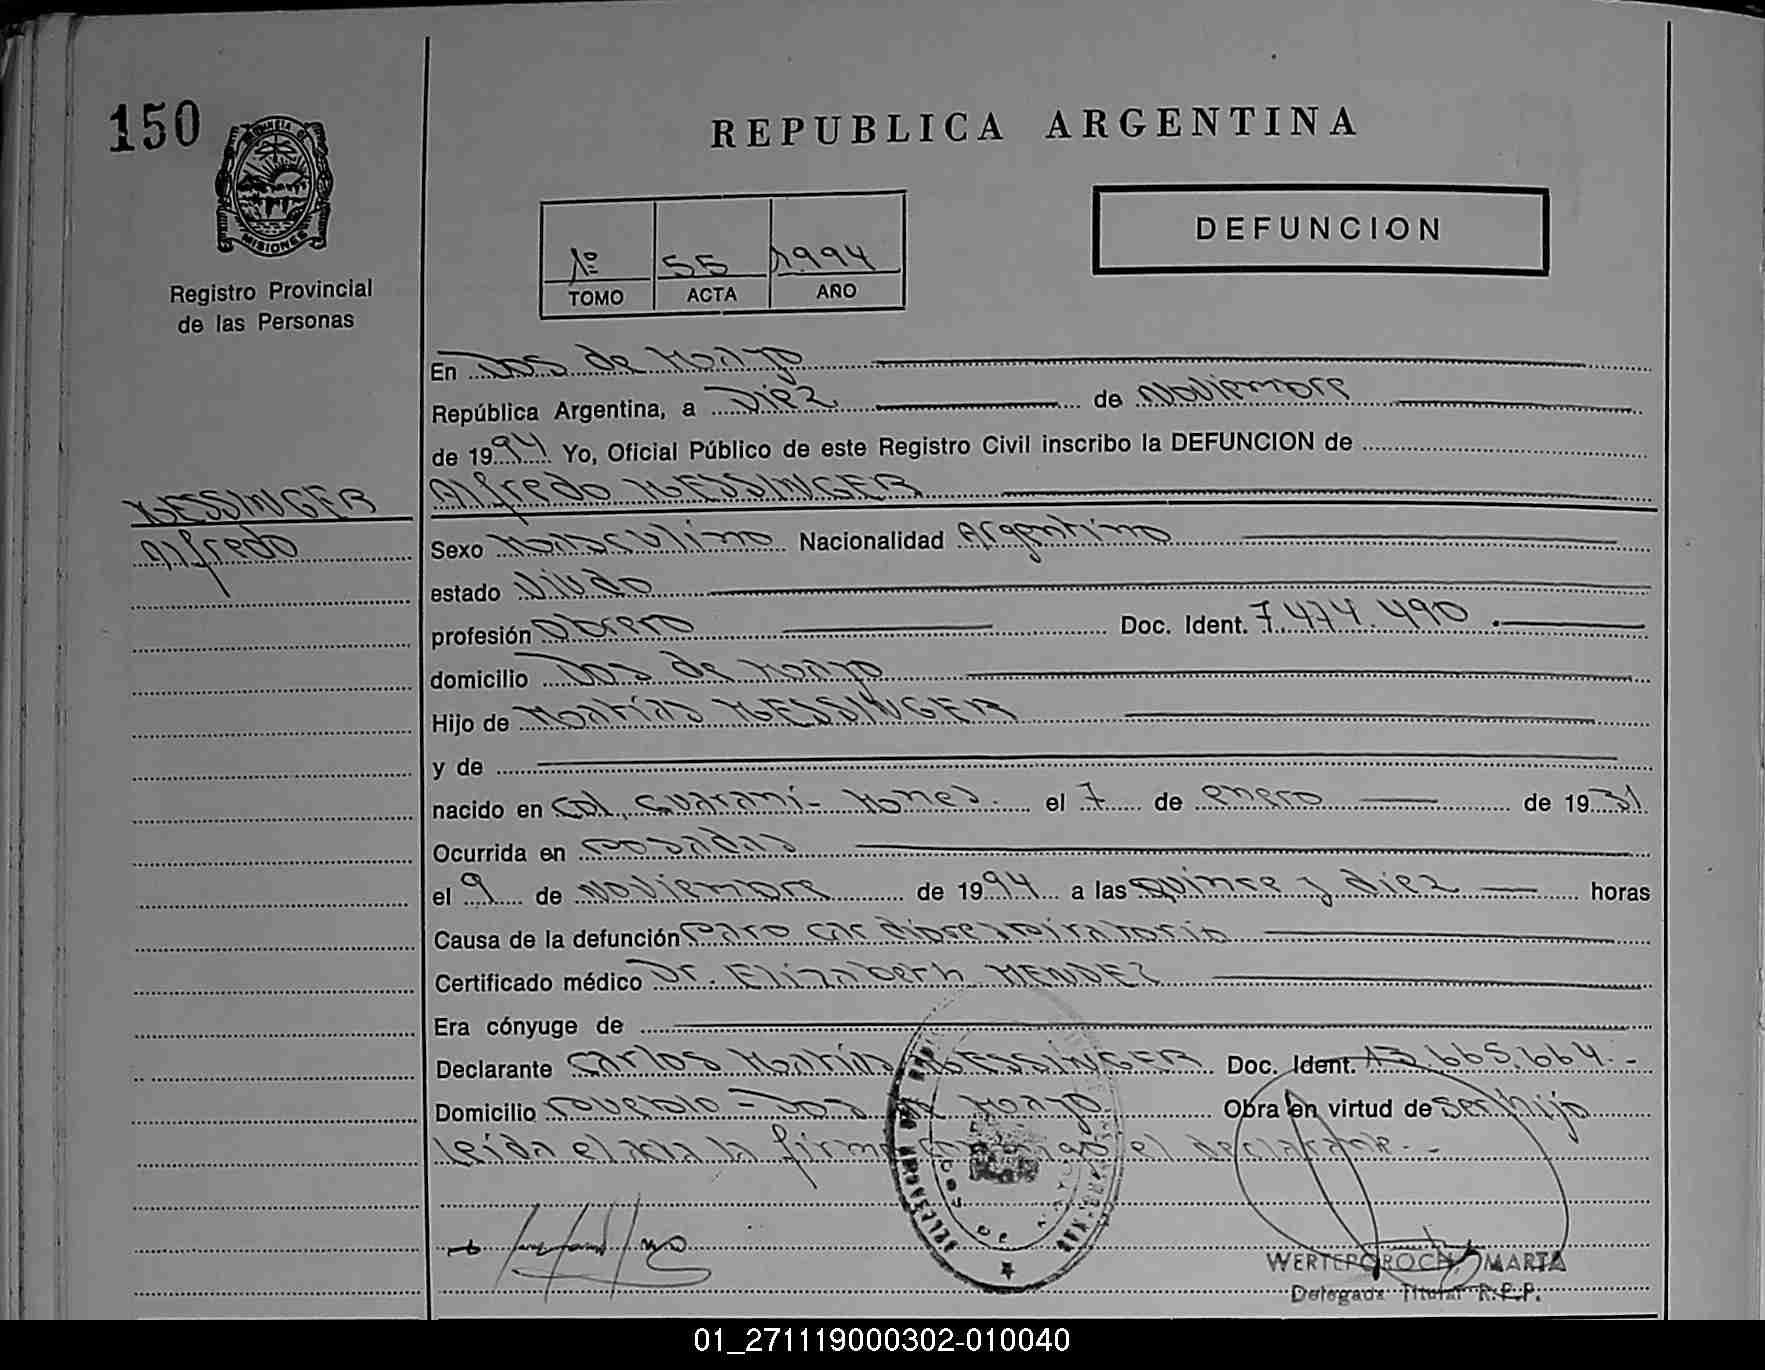 150
REPUBLICA ARGENTINA
PROVINCIA DE
MISIONES
DEFUNCION
Nº 55 1994
TOMO ACTA AÑO
Registro Provincial
de las Personas
En Dos de Mayo
República Argentina, a Diez de Noviembre
de 1994 Yo, Oficial Público de este Registro Civil inscribo la DEFUNCION de
Alfredo KESSINGER
KESSINGER
Alfredo
Sexo Masculino Nacionalidad Argentino
estado Viudo
profesión Obrero Doc. Ident. 7.474.490.
domicilio Dos de Mayo
Hijo de Matías KESSINGER
y de
nacido en Col. Guaraní - Mnes. el 7 de enero de 1931
Ocurrida en Posadas
el 9 de Noviembre de 1994 a las quince y diez horas
Causa de la defunción Paro cardiorespiratorio
Certificado médico Dr. Elizabeth MENDEZ
Era cónyuge de
Declarante Carlos Matías KESSINGER Doc. Ident. 13.665.664.-
Domicilio Pueblo - Dos de Mayo Obra en virtud de ser hijo
Leída el acta la firma conmigo el declarante.-
DOS DE MAYO
WERTEPOROCH, MARTA
Delegada Titular R.P.P.
01_271119000302-010040